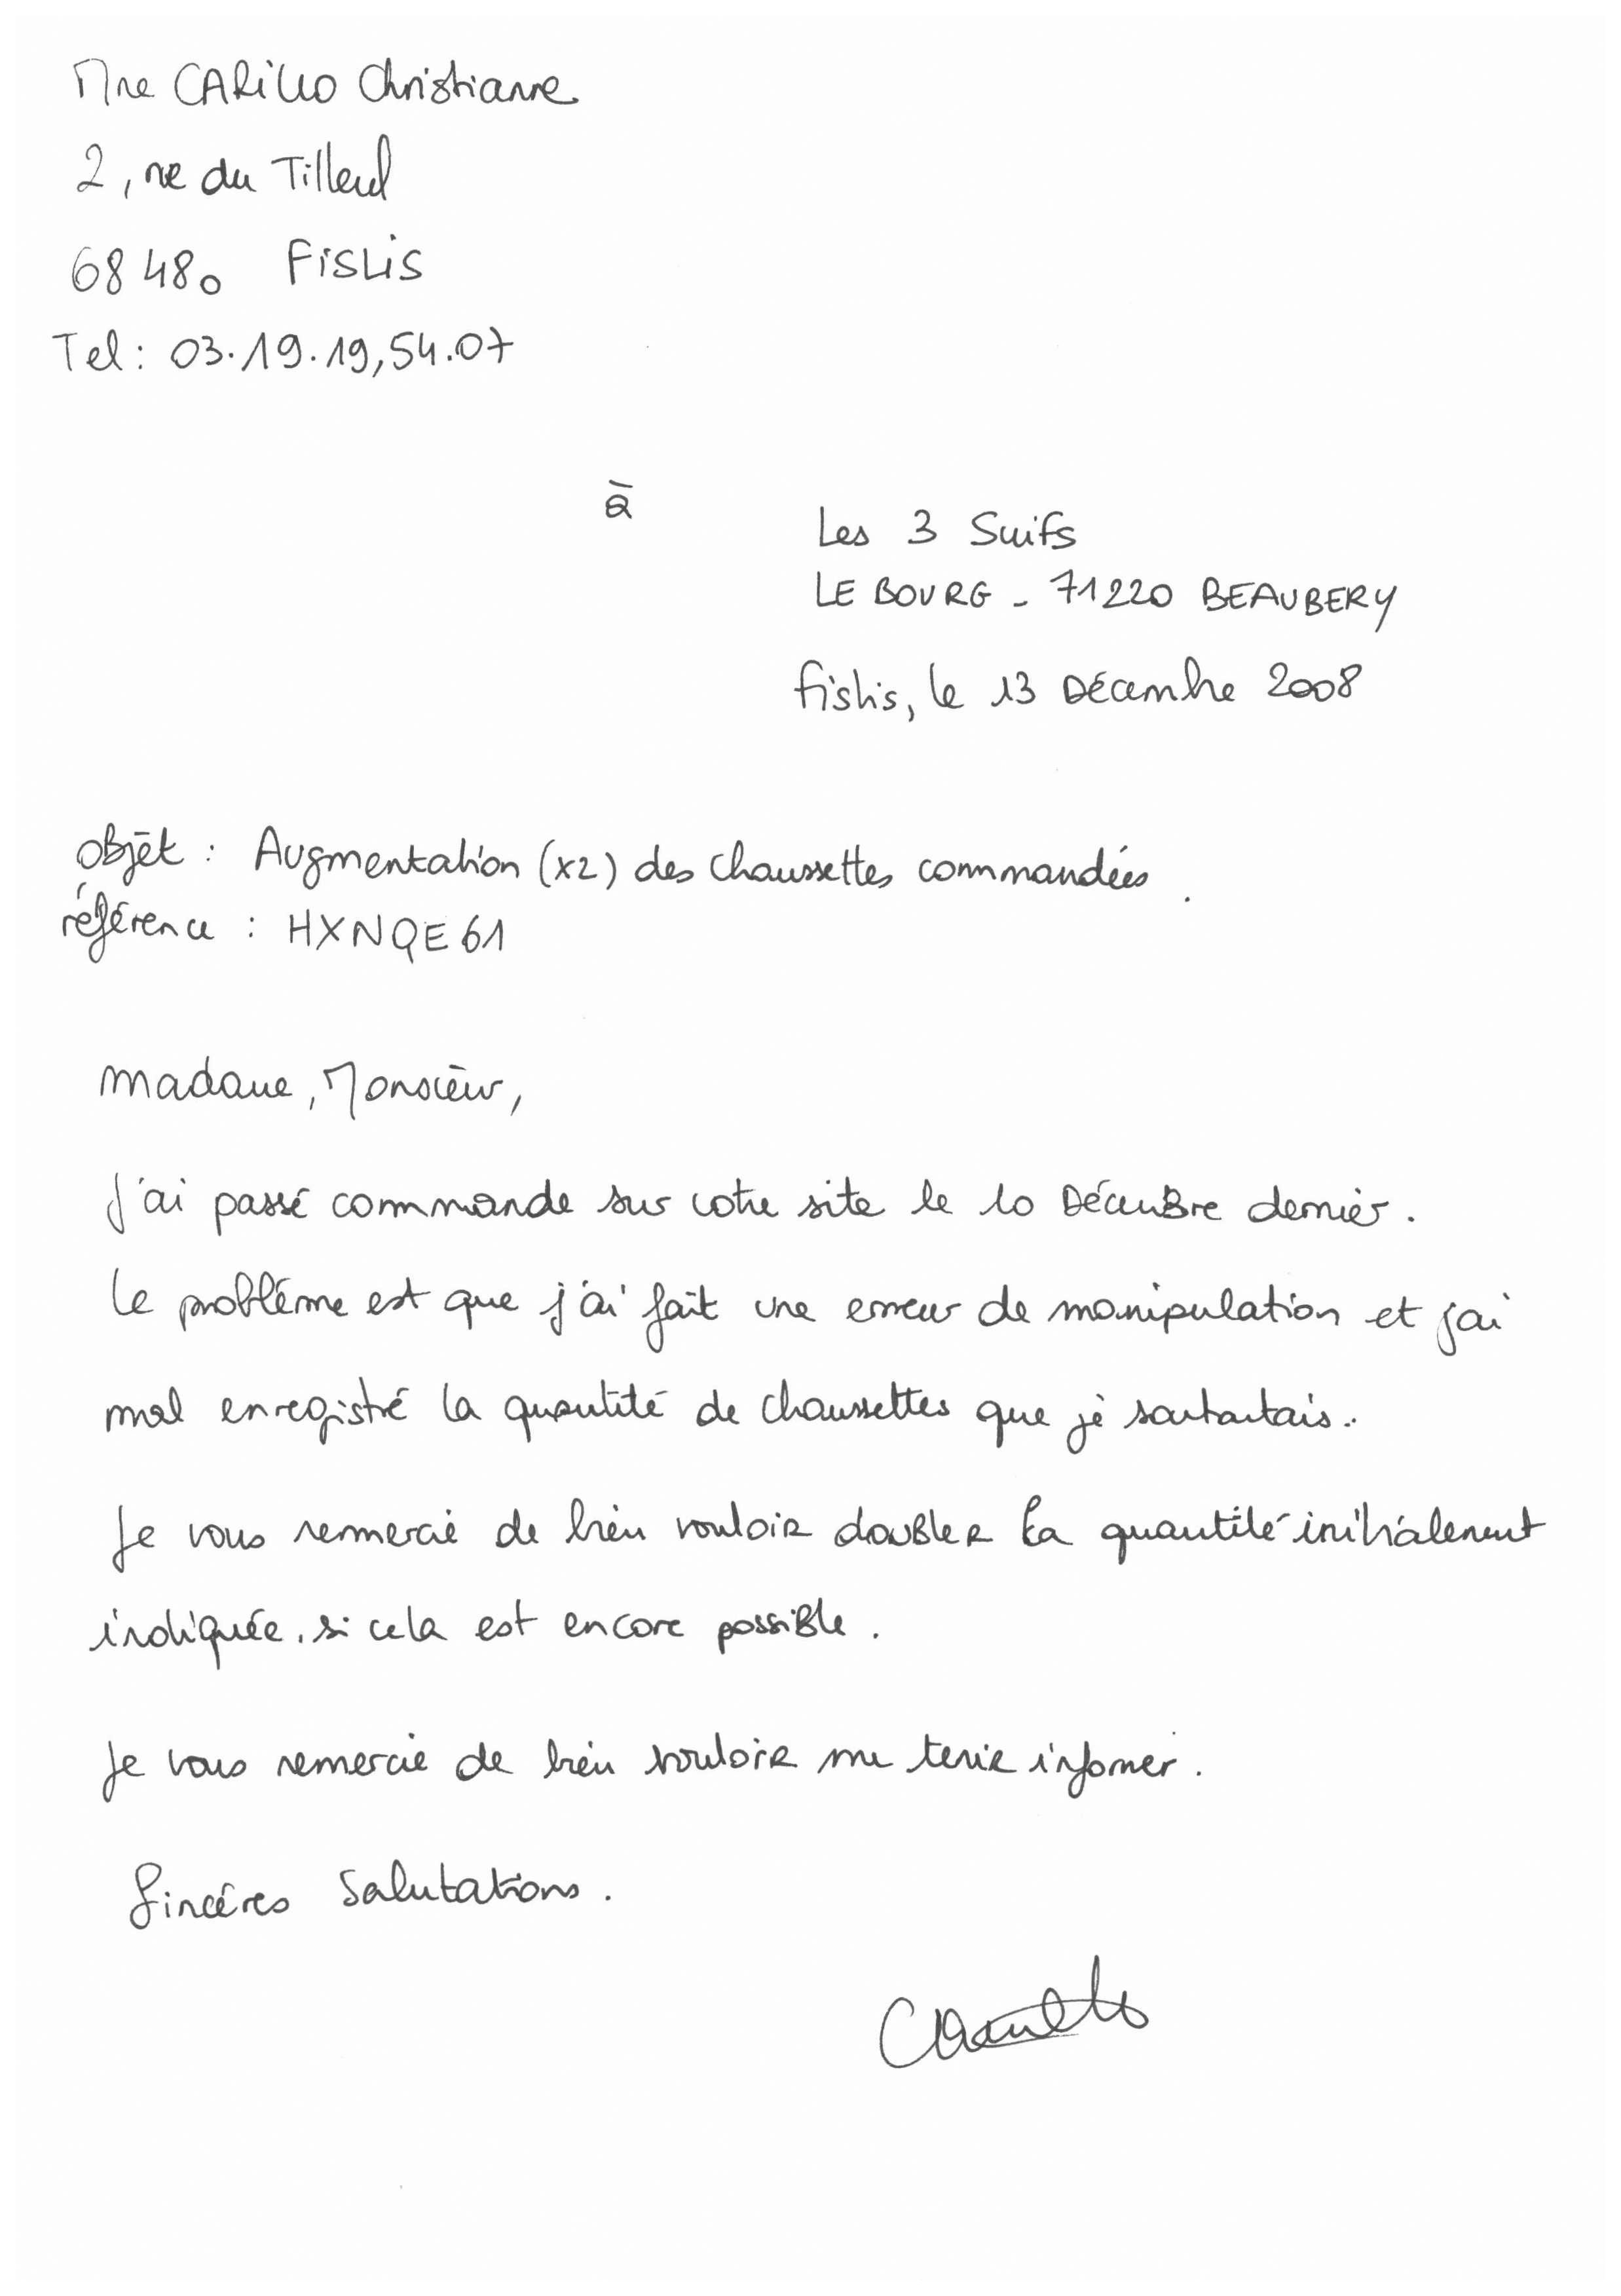 Mme CARILLO Christianne
2, rue du Tilleul
68480 Fislis
Tel: 03.19.19,54.07
à
Les 3 Suifs
LE BOURG - 71220 BEAUBERY
fislis, le 13 Décembre 2008
Objet : Augmentation (x2) des chaussettes commandées.
référence : HXNQE61
Madame, Monsieur,
J'ai passé commande sur votre site le 10 Décembre dernier.
Le problème est que j'ai fait une erreur de manipulation et j'ai
mal enregistré la quantité de chaussettes que je souhaitais.
Je vous remercie de bien vouloir doubler la quantité initialement
indiquée, si cela est encore possible.
Je vous remercie de bien vouloir me tenir informer.
Sincères Salutations.